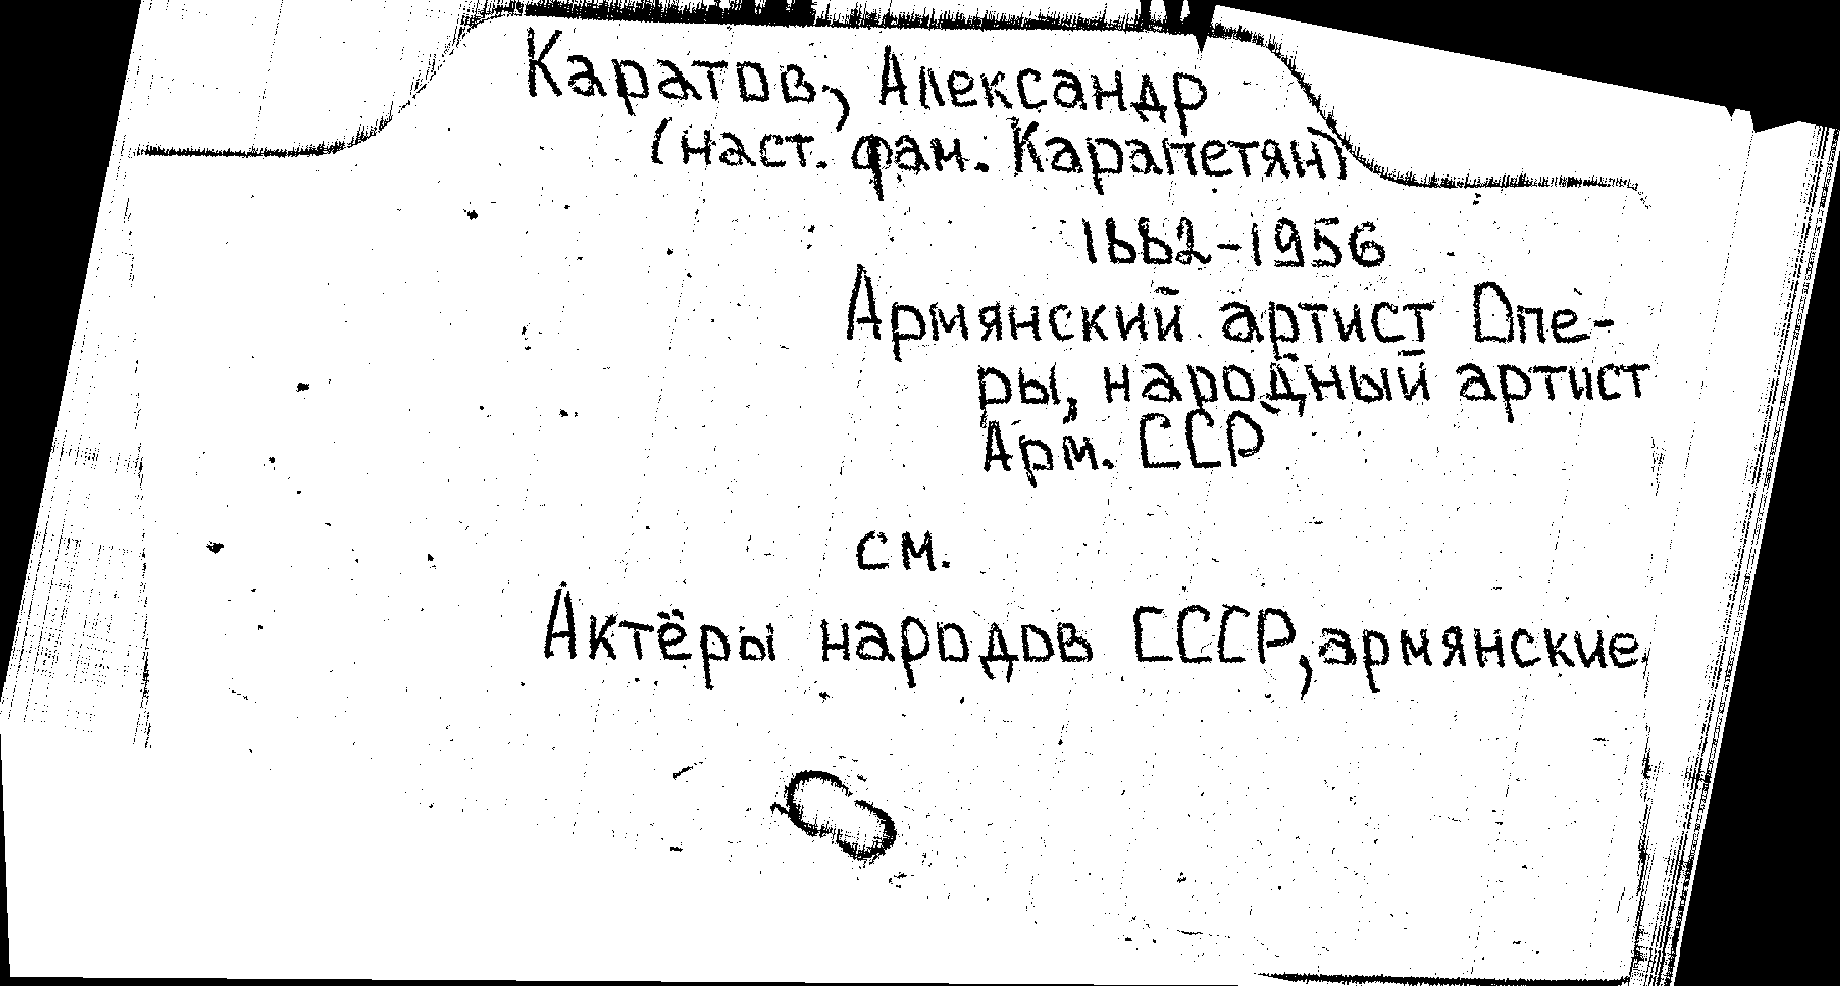 Каратов, Александр
(наст. фам. Карапетян)
1882-1956
Армянский артист Опе-
ры, народный артист
Арм. ССР
см.
Актёры народов СССР, армянские